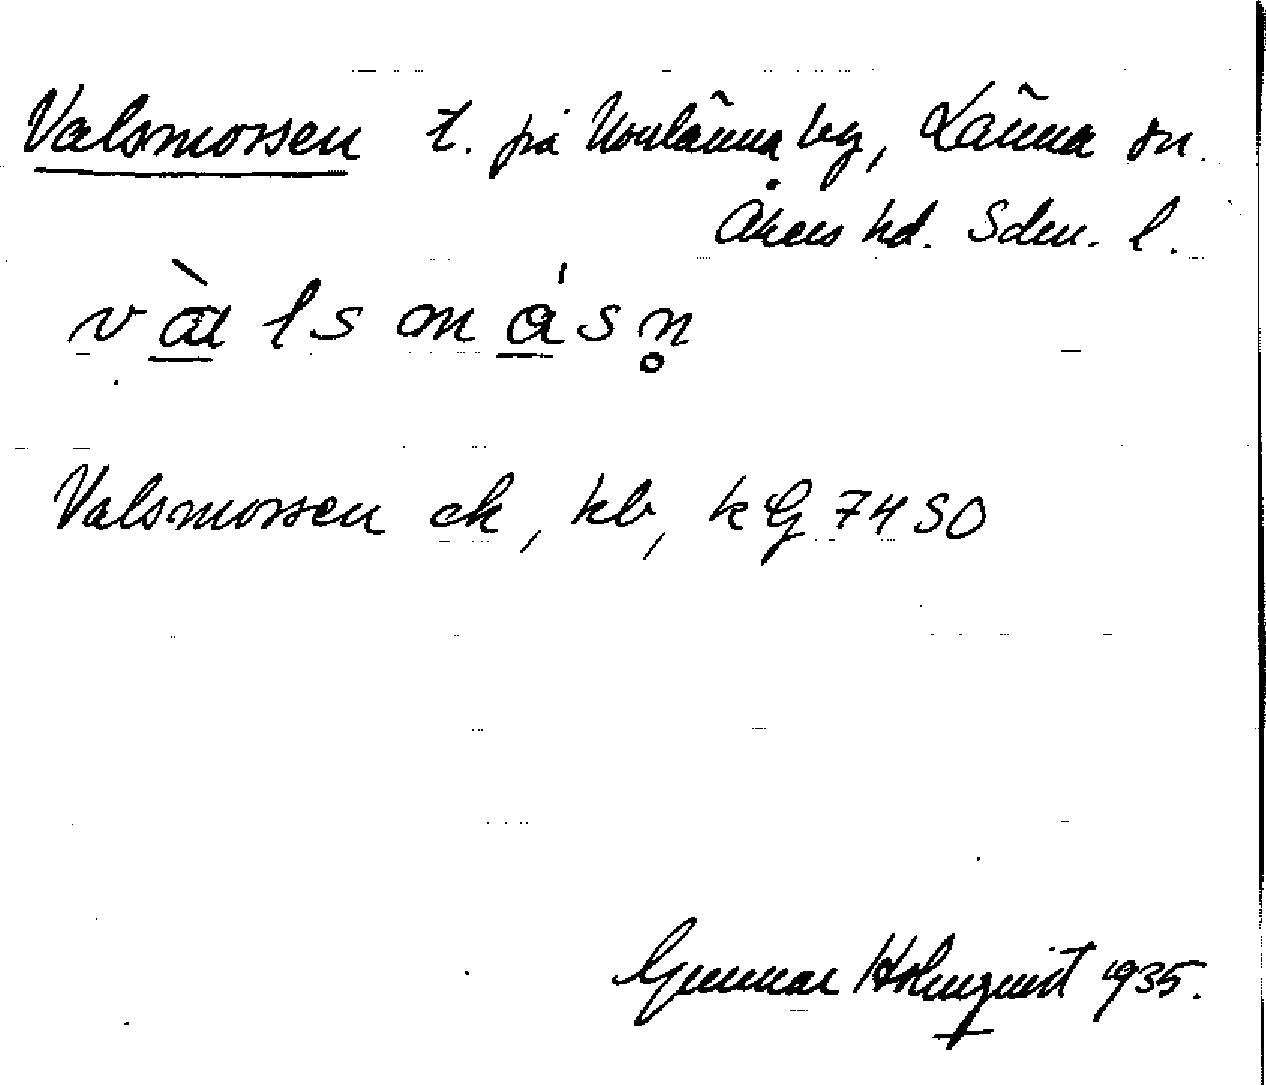 Valsmossen t. på Norrlänna by, Länna sn.
Åkers hd. Sdm. l.
Valsmossen ek, kb, kG 74 SO
Gunnar Holmquist 1935.